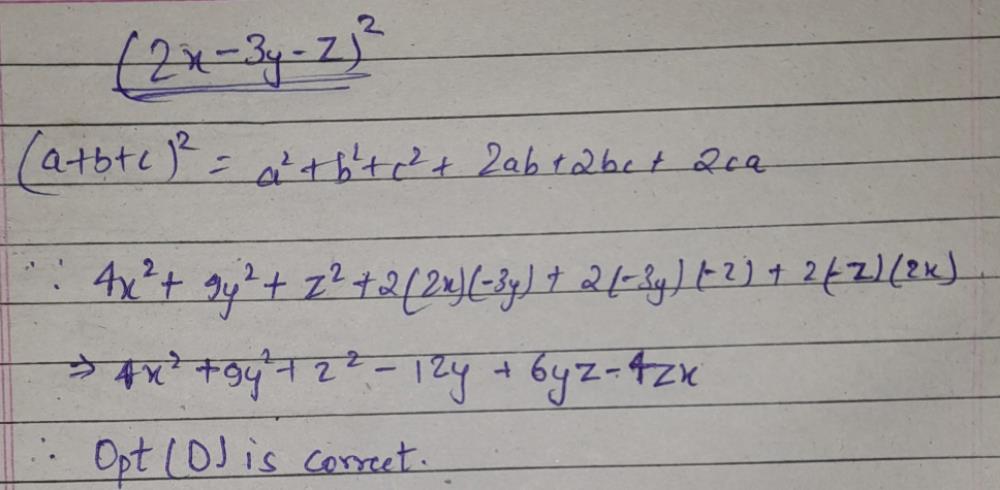 (2x-3y-z)²
(a+b+c)² = a²+b²+c²+ 2ab+2bc+ 2ca
∵ 4x²+ 9y²+ z²+2(2x)(-3y)+ 2(-3y)(-z)+ 2(-z)(2x)
⇒ 4x²+9y²+z²-12y+6yz-4zx
∴ Opt (D) is correct.